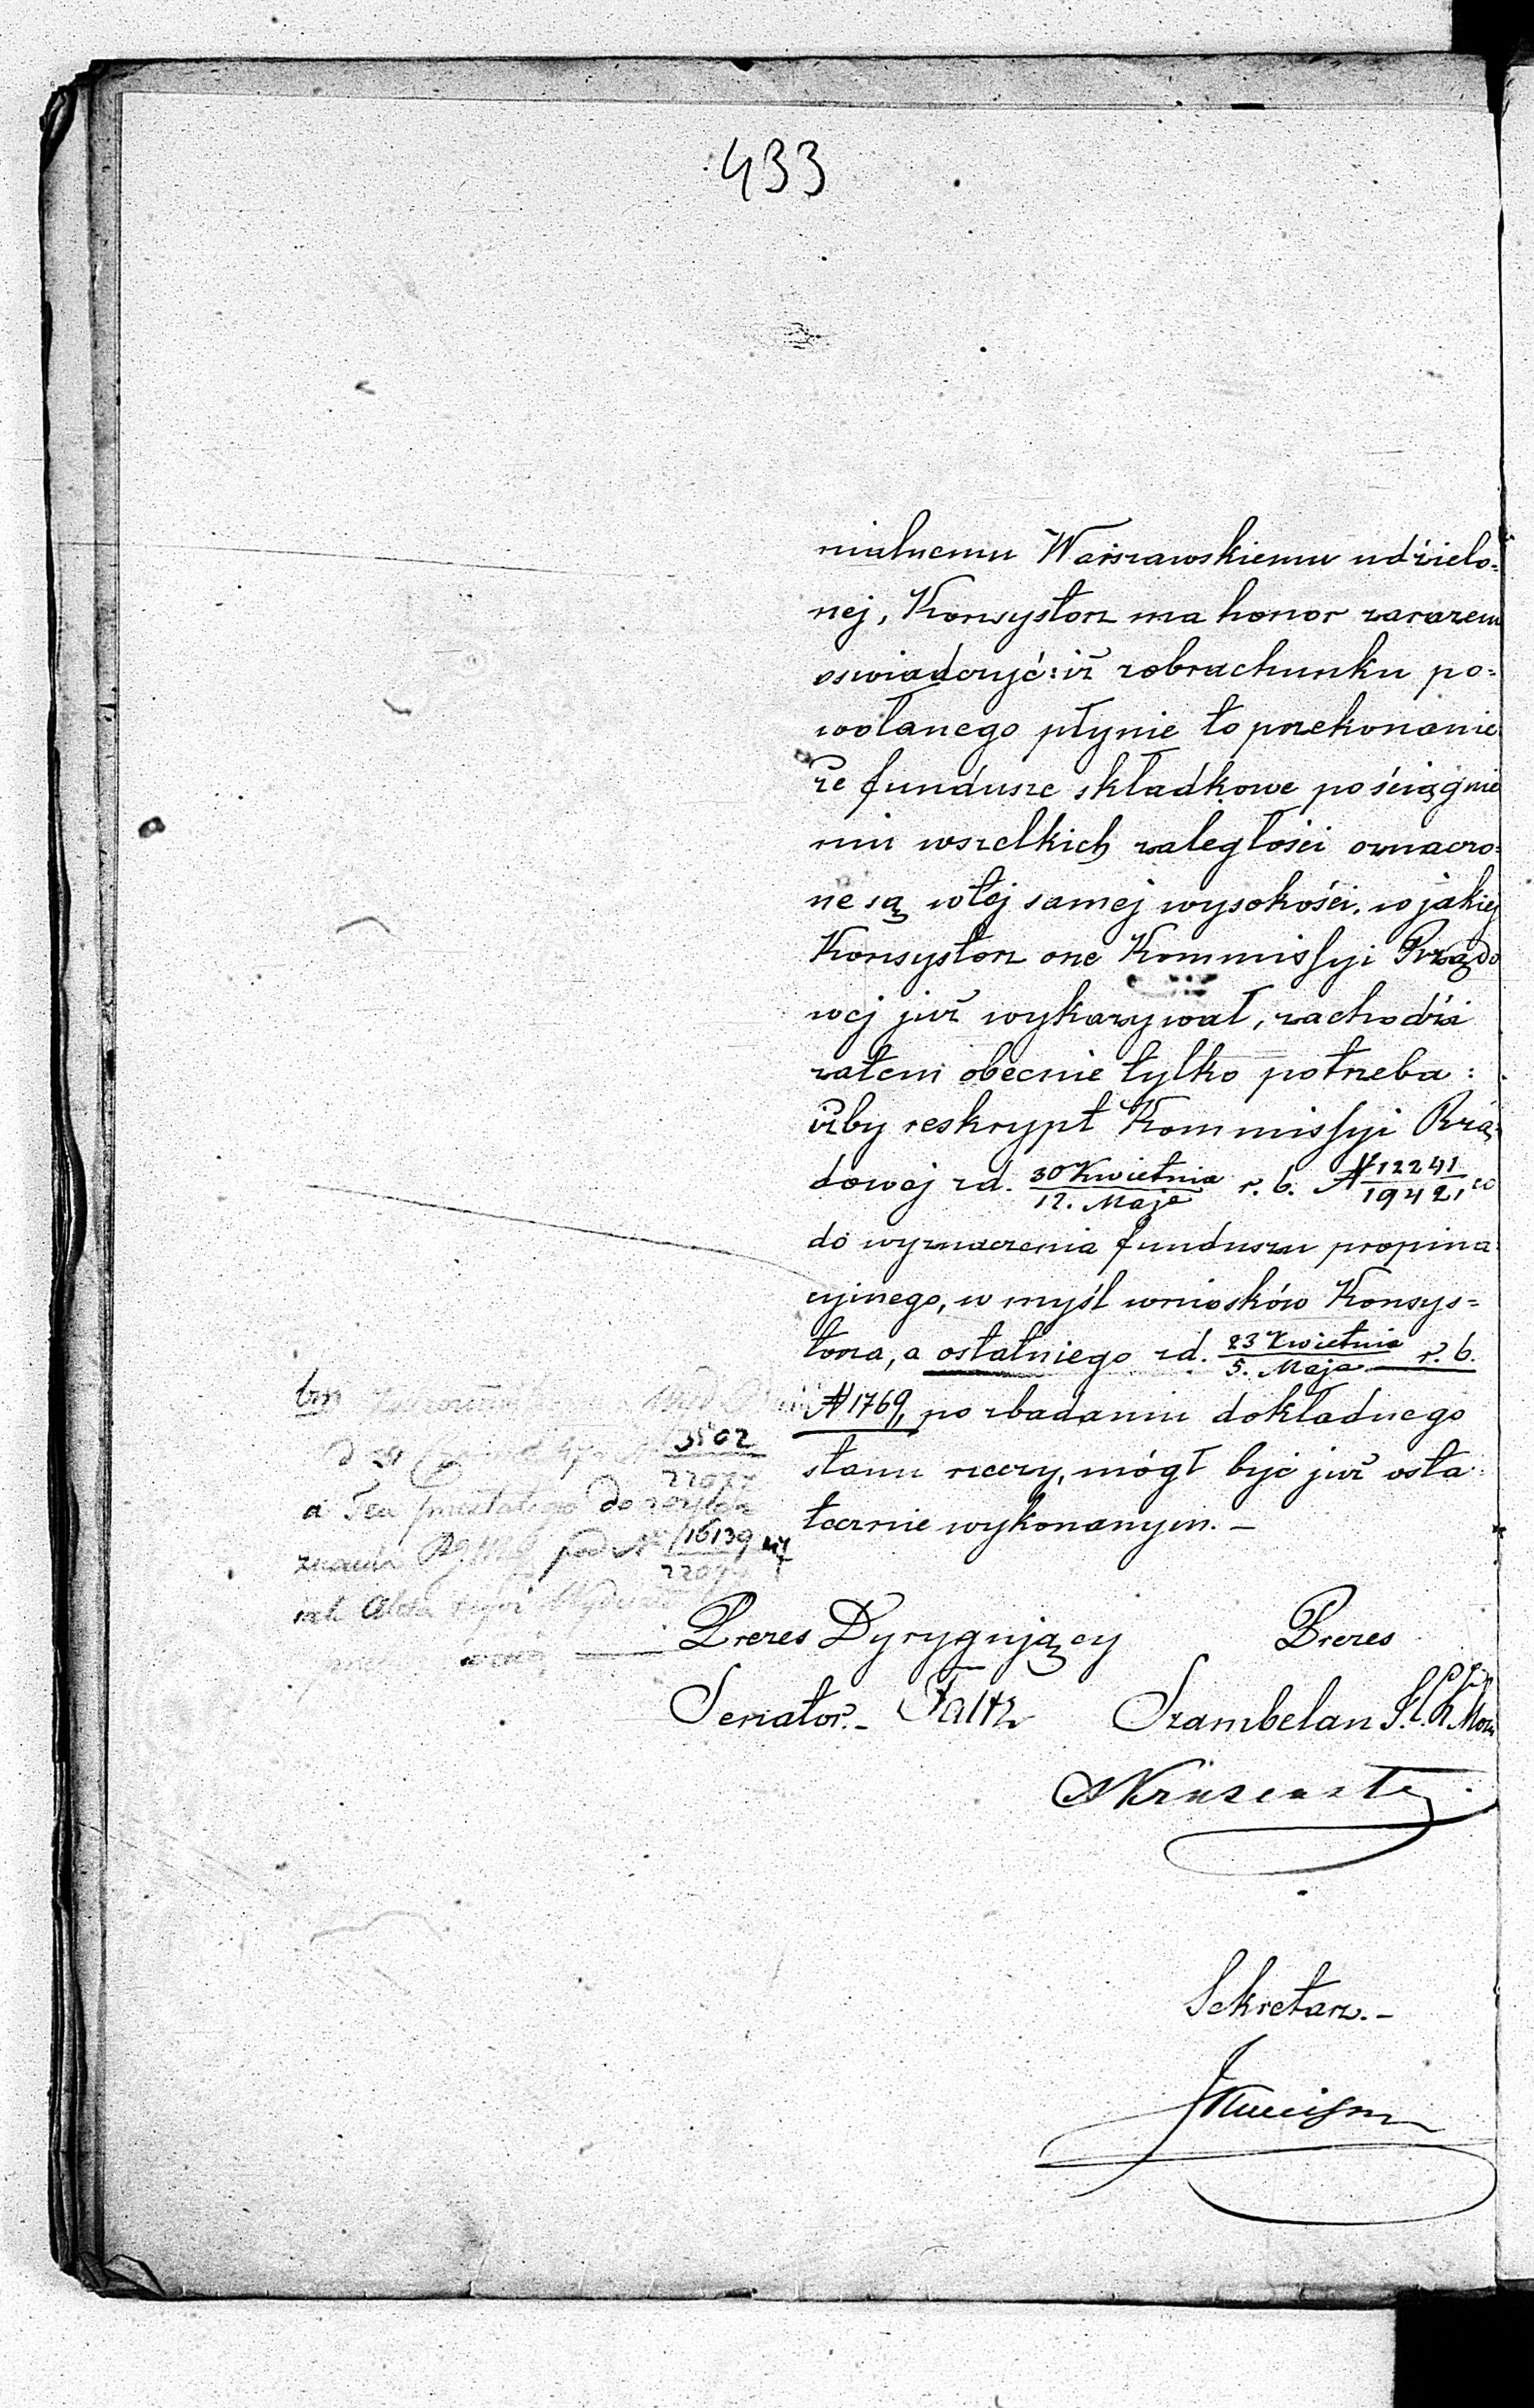 433
nialnemu Warszawskiemu udzielo=
nej, Konsystorz ma honor zarazem
oswiadczyć: iż zobrachunku po=
wołanego płynie to przekonanie
że fundusze składkowe po ściągnie
niu wszelkich zaległości oznaczo=
ne są wtej samej wysokości, w jakiej
Konsystorz one Kommissyi Rządo
wej już wykazywał, zachodzi
zatem obecnie tylko potrzeba:
iżby reskrypt Kommissyi Rzą=
dowej zd. 30 Kwietnia / 12. Maja r. b. N 12241 / 19421, co
do wyznaczenia funduszu propina=
cyjnego, w myśl wniosków Konsys=
torza, a ostatniego zd. 23 Kwietnia / 5. Maja r. b.
N 1769, po zbadaniu dokładnego
stanu rzeczy, mógł być już osta=
tecznie wykonanym. –
3502
22077
a Ten
pod N 16139
22077
Akta
Prezes Dyrygujący Prezes
Senator. – Faltz Szambelan
Sekretarz. –